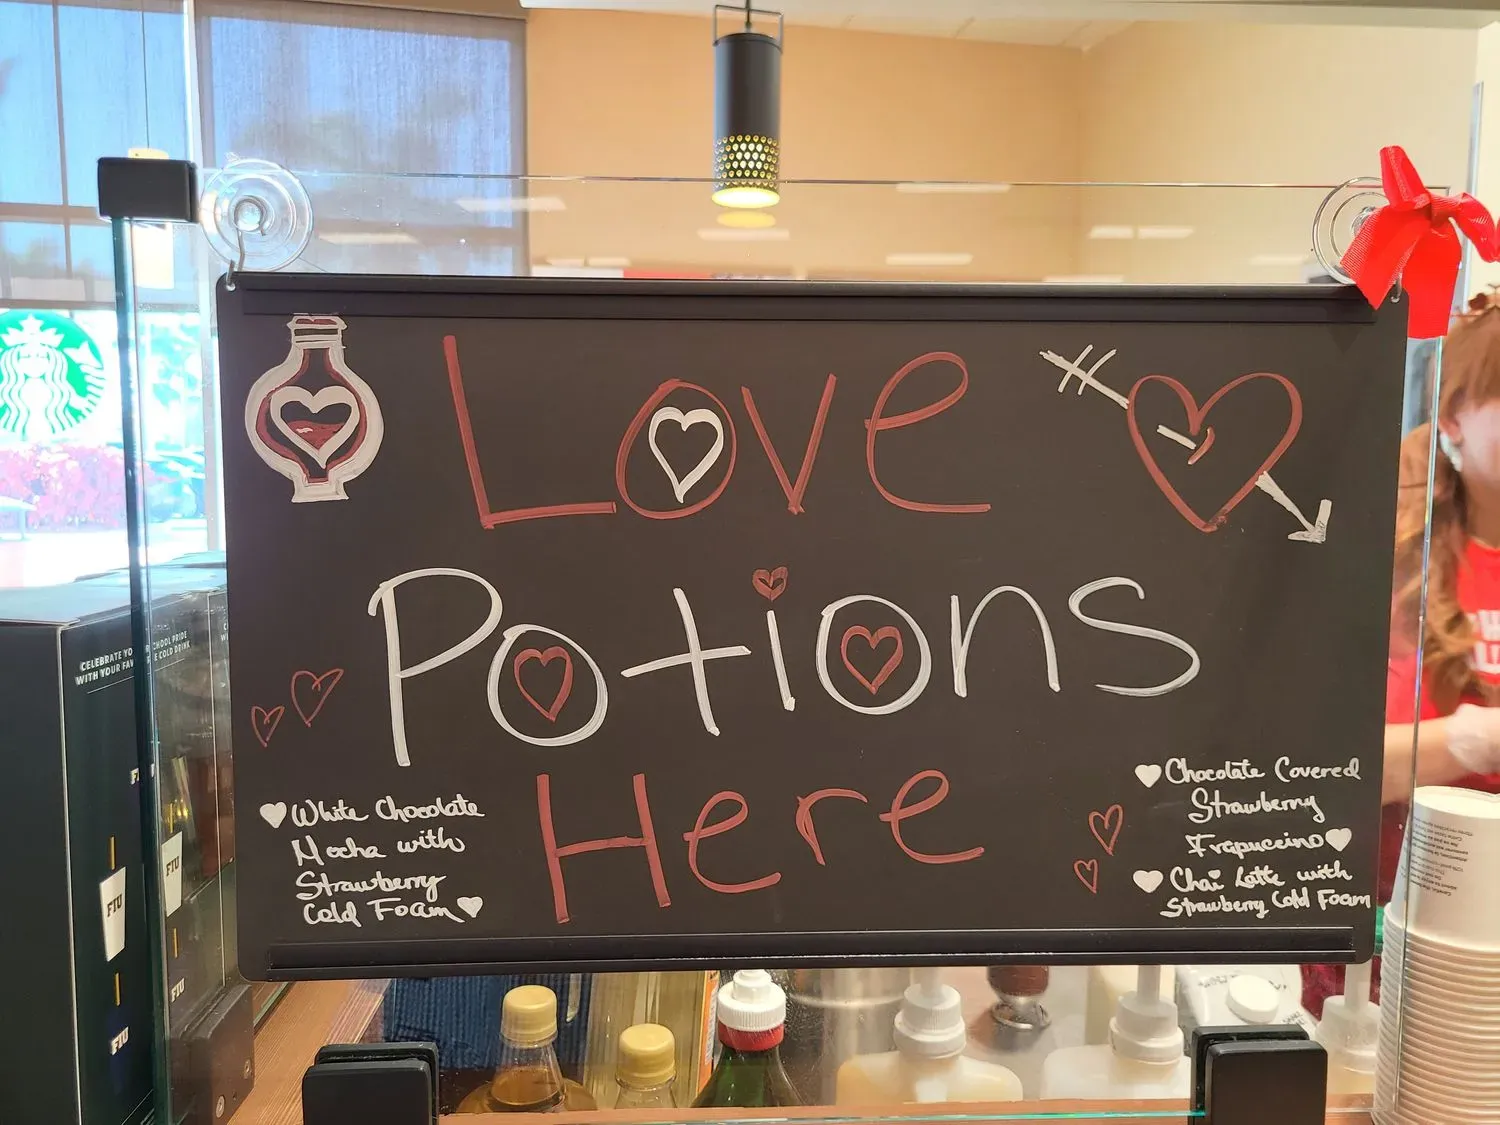 Love
Potions
Here
White Chocolate
Mocha with
Strawberry
Cold Foam
Chocolate Covered
Strawberry
Frapuccino
Chai Latte with
Strawberry Cold Foam
CELEBRATE YO
WITH YOUR FAV
CHOOL PRIDE
E COLD DRINK
FIU
FIU
FIU
FIU